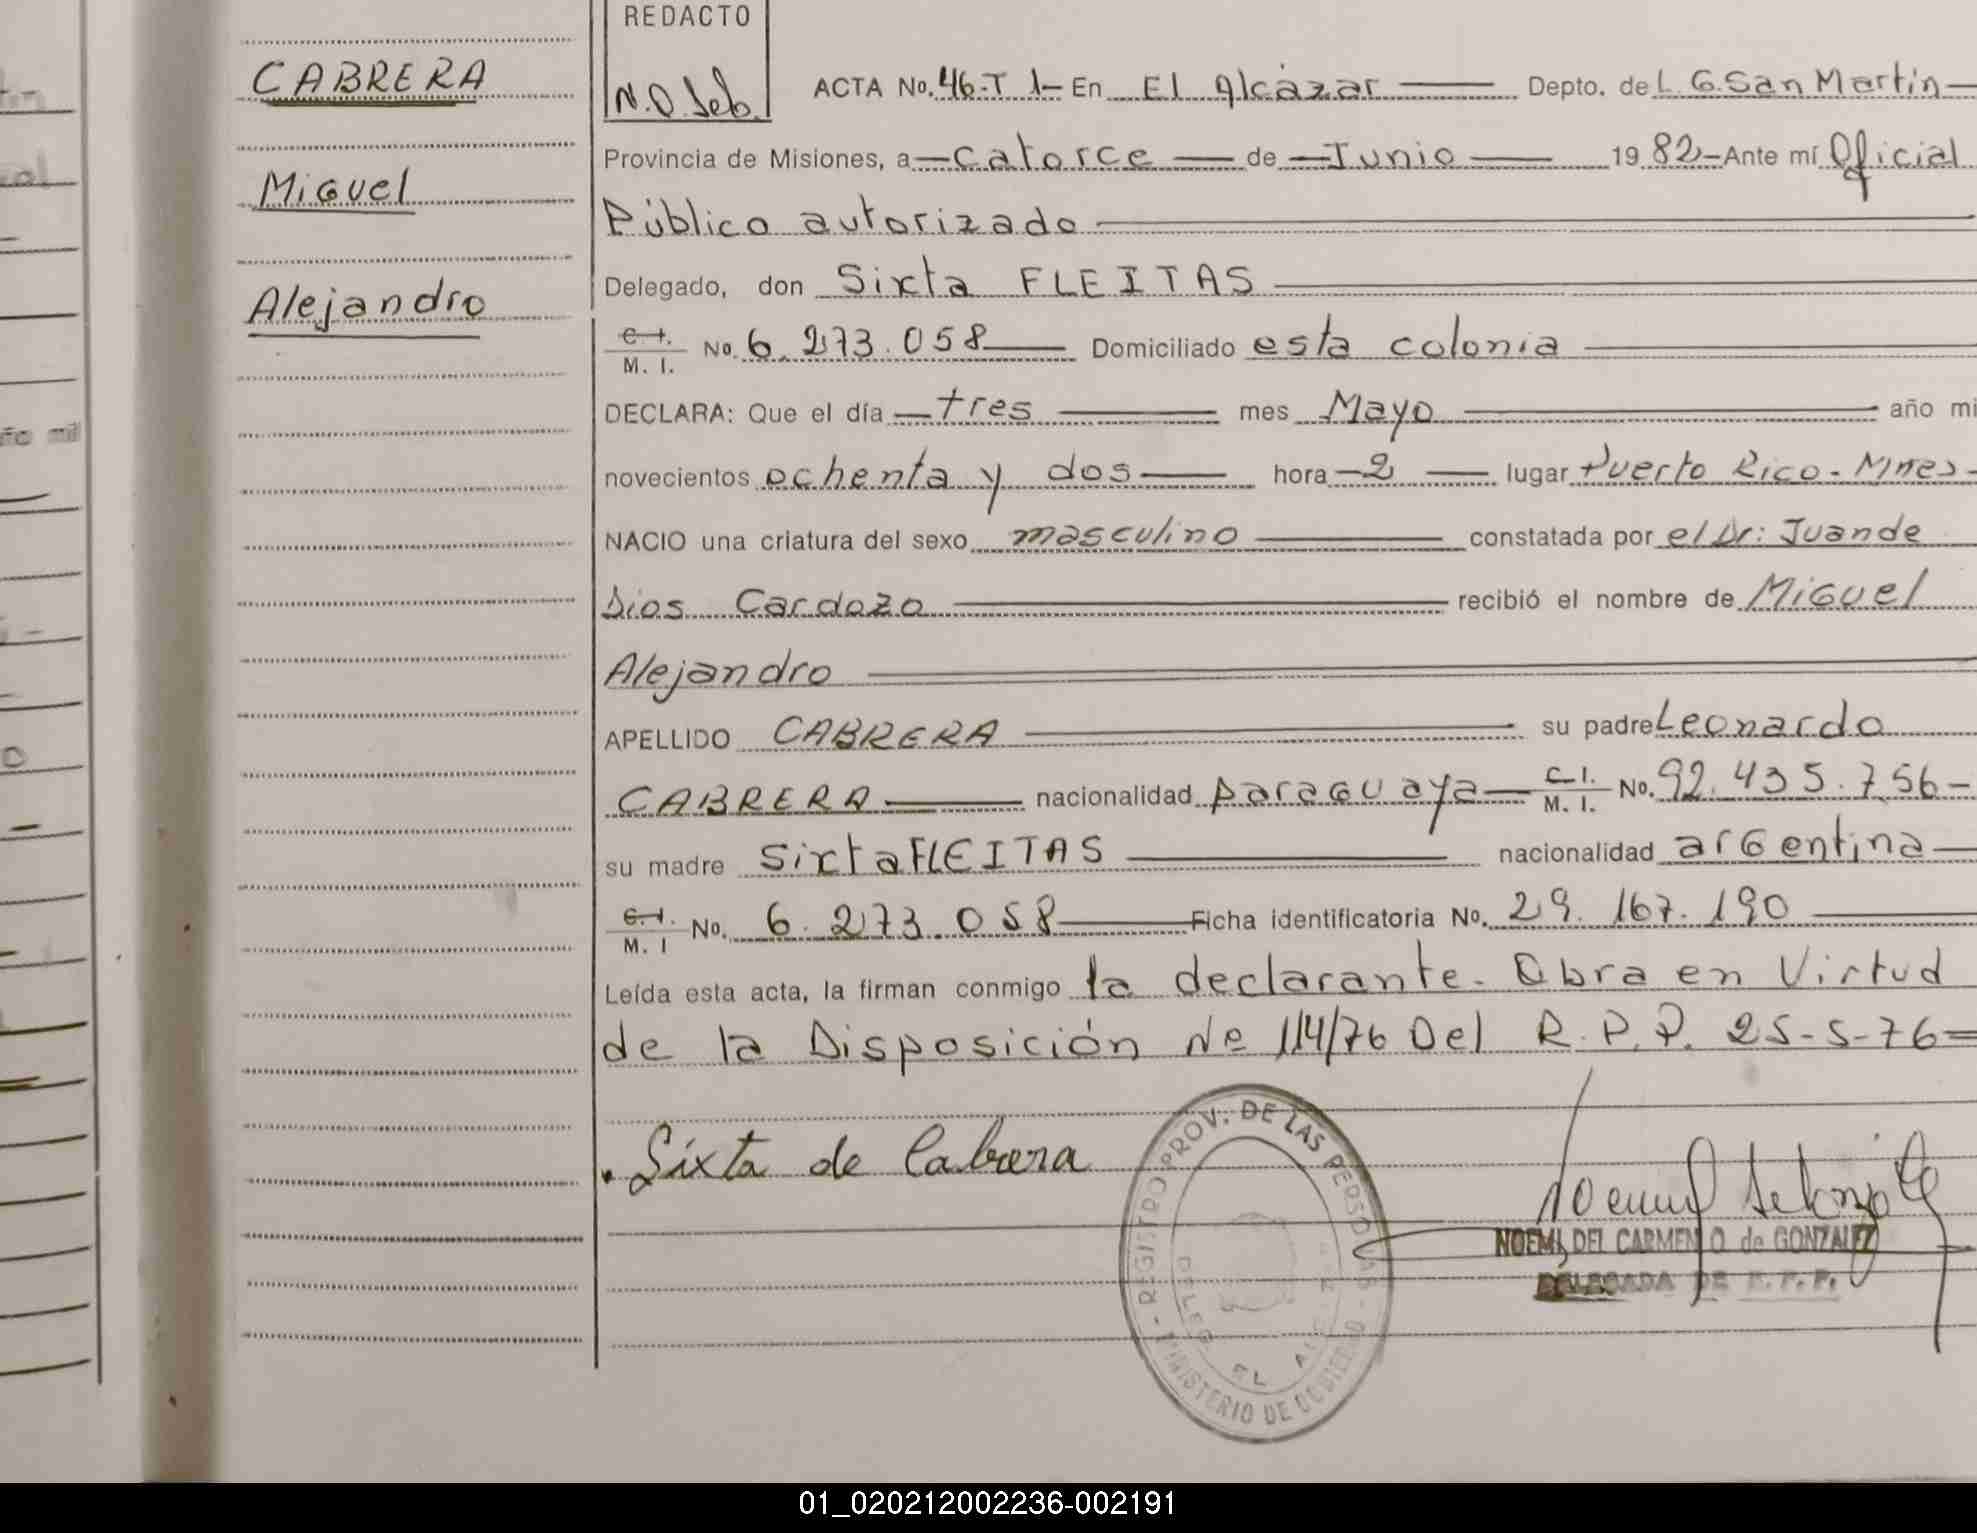 CABRERA
Miguel
Alejandro
REDACTO
ACTA No. 46-T 1- En El Alcázar Depto. de L.G. San Martin
Provincia de Misiones, a catorce de Junio 19 82 - Ante mí Oficial
Público autorizado
Delegado, don Sixta FLEITAS
C.I. / M. I. No. 6.273.058 Domiciliado esta colonia
DECLARA: Que el día tres mes Mayo año mi
novecientos ochenta y dos hora 2 lugar Puerto Rico - Mnes -
NACIO una criatura del sexo masculino constatada por el Dr: Juan de
Dios Cardozo recibió el nombre de Miguel
Alejandro
APELLIDO CABRERA su padre Leonardo
CABRERA nacionalidad paraguaya C.I. / M. I. No. 92.435.756 -
su madre Sixta FLEITAS nacionalidad argentina
C.I. / M. I No. 6.273.058 Ficha identificatoria No. 29.167.190
Leída esta acta, la firman conmigo la declarante. Obra en Virtud
de la Disposición Nº 114/76 Del R.P.P. 25-5-76=
Sixta de Cabrera
REGISTRO PROV. DE LAS PERSONAS - MINISTERIO DE GOBIERNO
DELEG. EL
NOEMI DEL CARMEN O de GONZALEZ
DELEGADA DE R. P. P.
01_020212002236-002191